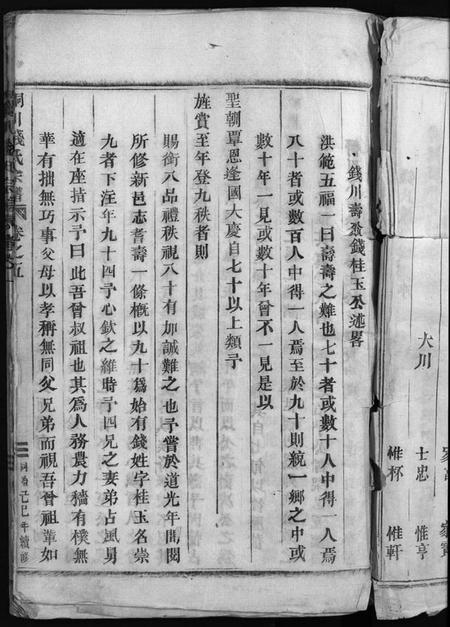 錢川壽翁錢桂玉公述畧
洪範五福一曰壽壽之難也七十者或數十人中得一人焉
八十者或數百人中得一人焉至於九十則統一鄉之中或
數十年一見或數十年曾不一見是以
聖朝覃恩逢國大慶自七十以上類予
旌賞至年登九秩者則
賜銜八品禮秩視八十有加誠難之也予嘗於道光年間閱
所修新邑志耆壽一條概以九十爲始有錢姓字桂玉名崇
九者下注年九十四予心欽之維時予四兄之妻弟占風男
適在座指示予曰此吾曾叔祖也其爲人務農力穡有樸無
華有拙無巧事父母以孝稱無同父兄弟而視吾曾祖輩如
桐川錢氏宗譜
卷之五
同治己巳年續修
大川
士忠
惟亨
惟杯
惟軒
家寶